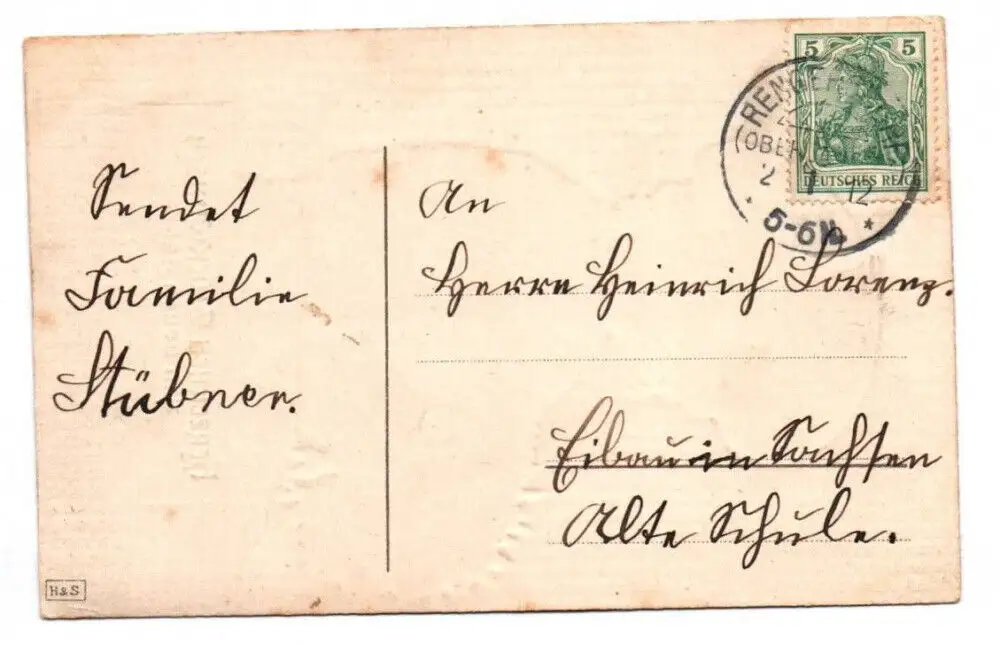 Sendet
Familie
Stübner.
An
Herrn Heinrich Lorenz.
Eibau in Sachsen
Alte Schule.
5 5
DEUTSCHES REICH
2 1 12
5-6N.
H&S